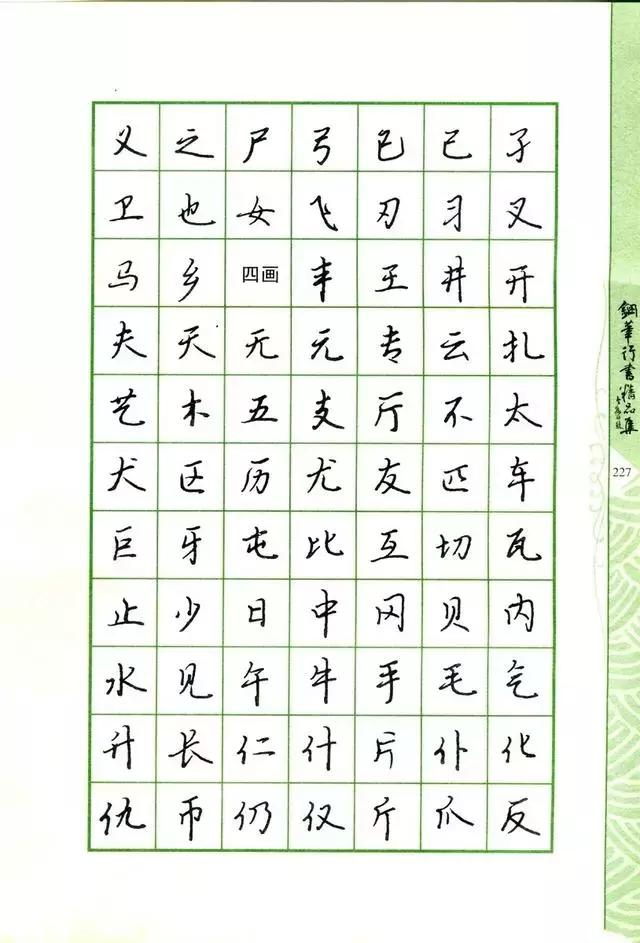 义 之 尸 弓 巳 已 孑
卫 也 女 飞 刃 习 叉
马 乡 四画 丰 王 井 开
夫 天 无 元 专 云 扎
艺 木 五 支 厅 不 太
犬 区 历 尤 友 匹 车
巨 牙 屯 比 互 切 瓦
止 少 日 中 冈 贝 内
水 见 午 牛 手 毛 气
升 长 仁 什 片 仆 化
仇 币 仍 仅 斤 爪 反
鋼筆行書精品集
227